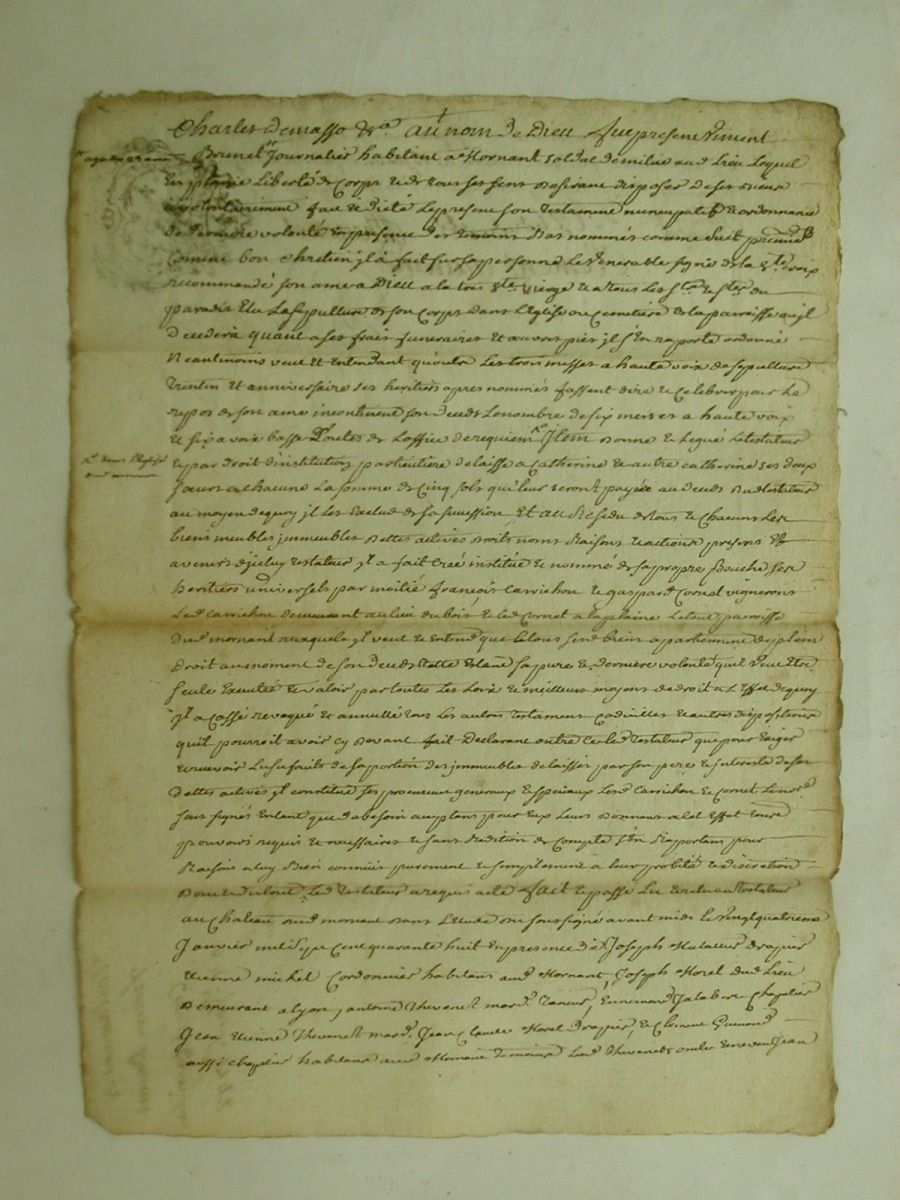 Charles Demasso &ca au nom de Dieu fut present Vincent
Brunet Journalier habitant a Mornant soldat de milice aud Lieu Lequel
En pleine Liberté de Corps & de tous ses sens desirant disposer de ses biens
a volontairement fait & dicté Le present son testament nuncupatif & ordonnance
de derniere volonté En presence des temoins bas nommés comme suit premier
Comme bon Chretien jl a fait sur sa personne Le Venerable signe de la Ste Croix
recommandé son ame a Dieu a la tres Ste Vierge & a tous Les Sts & Stes du
paradis Elu La sepulture de son Corps dans L'Eglise ou Cemetiere de la parroisse ou jl
decedera quant a ses frais funeraires Et œuvres pies jl s'En raporte ordonné
Neantmoins veut Et Entendant qu'outre Les trois messes a haute voix de sepulture
Trentin Et anniversaire ses heritiers apres nommés fassent dire & Celebrer pour Le
repos de son ame incontinent son deceds Le nombre de six messes a haute voix
& six a voix basse Toutes de L'office de requiem Item donne & Legue Le testateur
& par droit d'institution particuliere delaisse a Catherine & autre Catherine ses deux
sœurs a chacune La somme de Cinq sols qui leur seront payée au deceds du testateur
au moyen de quoy jl Les Exclud de sa succession Et au Residu de tous & Chacuns Les
biens meubles jmmeubles dettes actives droits noms Raisons & actions presens &
avenirs djceluy testateur jl a fait Créé institué & nommé de sa propre Bouche ses
heritiers universels par moitié françois Carrichon & gaspard Cornet vignerons
Led Carrichon demeurant au lieu du bois & led Cornet a la plaine Le tout parroisse
dud mornant auxquels jl veut & Entend que tous sesd biens appartiennent de plein
droit au moment de son deceds telle Estant sa pure & derniere volonté qu'il veut Etre
seule Executée & valoir par toutes Les Loix & meilleurs moyens de droit a L'Effet de quoy
jl a Cassé revoqué Et annullé tous Les autres testament Codicilles & autres dispositions
qu'il pourroit avoir Cy devant fait Declarant outre Ce led testateur que pour Exiger
& recevoir Lusufruits de sa portion des jmmeubles delaissés par son pere & jnterests de ses
dettes actives jl constitue ses procureurs generaux & speciaux Lesd Carrichon & Cornet
sous signés Entant que de besoin acceptans pour Eux Leurs donnant a cet Effet tous
pouvoirs requis & necessaires & sans Reddition de Compte s'En Raportant pour
Raisons a luy bien connües purement & simplement a leur probité & discretion
Dont & du tout Led testateur a requis acte fait & passé Lu & relu au testateur
au Chateau dud mornant dans L'Etude du soussigné avant midi le vingt quatrieme
Janvier mil sept Cent quarante huit En presence de Joseph drapier
Etienne michel Cordonnier habitans aud Mornant Joseph Morel dud Lieu
Demeurant a lyon, antoine Thevenet mard Tanneur, Ennemond Jalabert Chapelier
Jean Etienne Thevenet mard. Jean Claude Morel drapier, & Clement
aussi chapelier habitans aud Mornant Temoins Lesd Thevenets oncle & neveu Jean